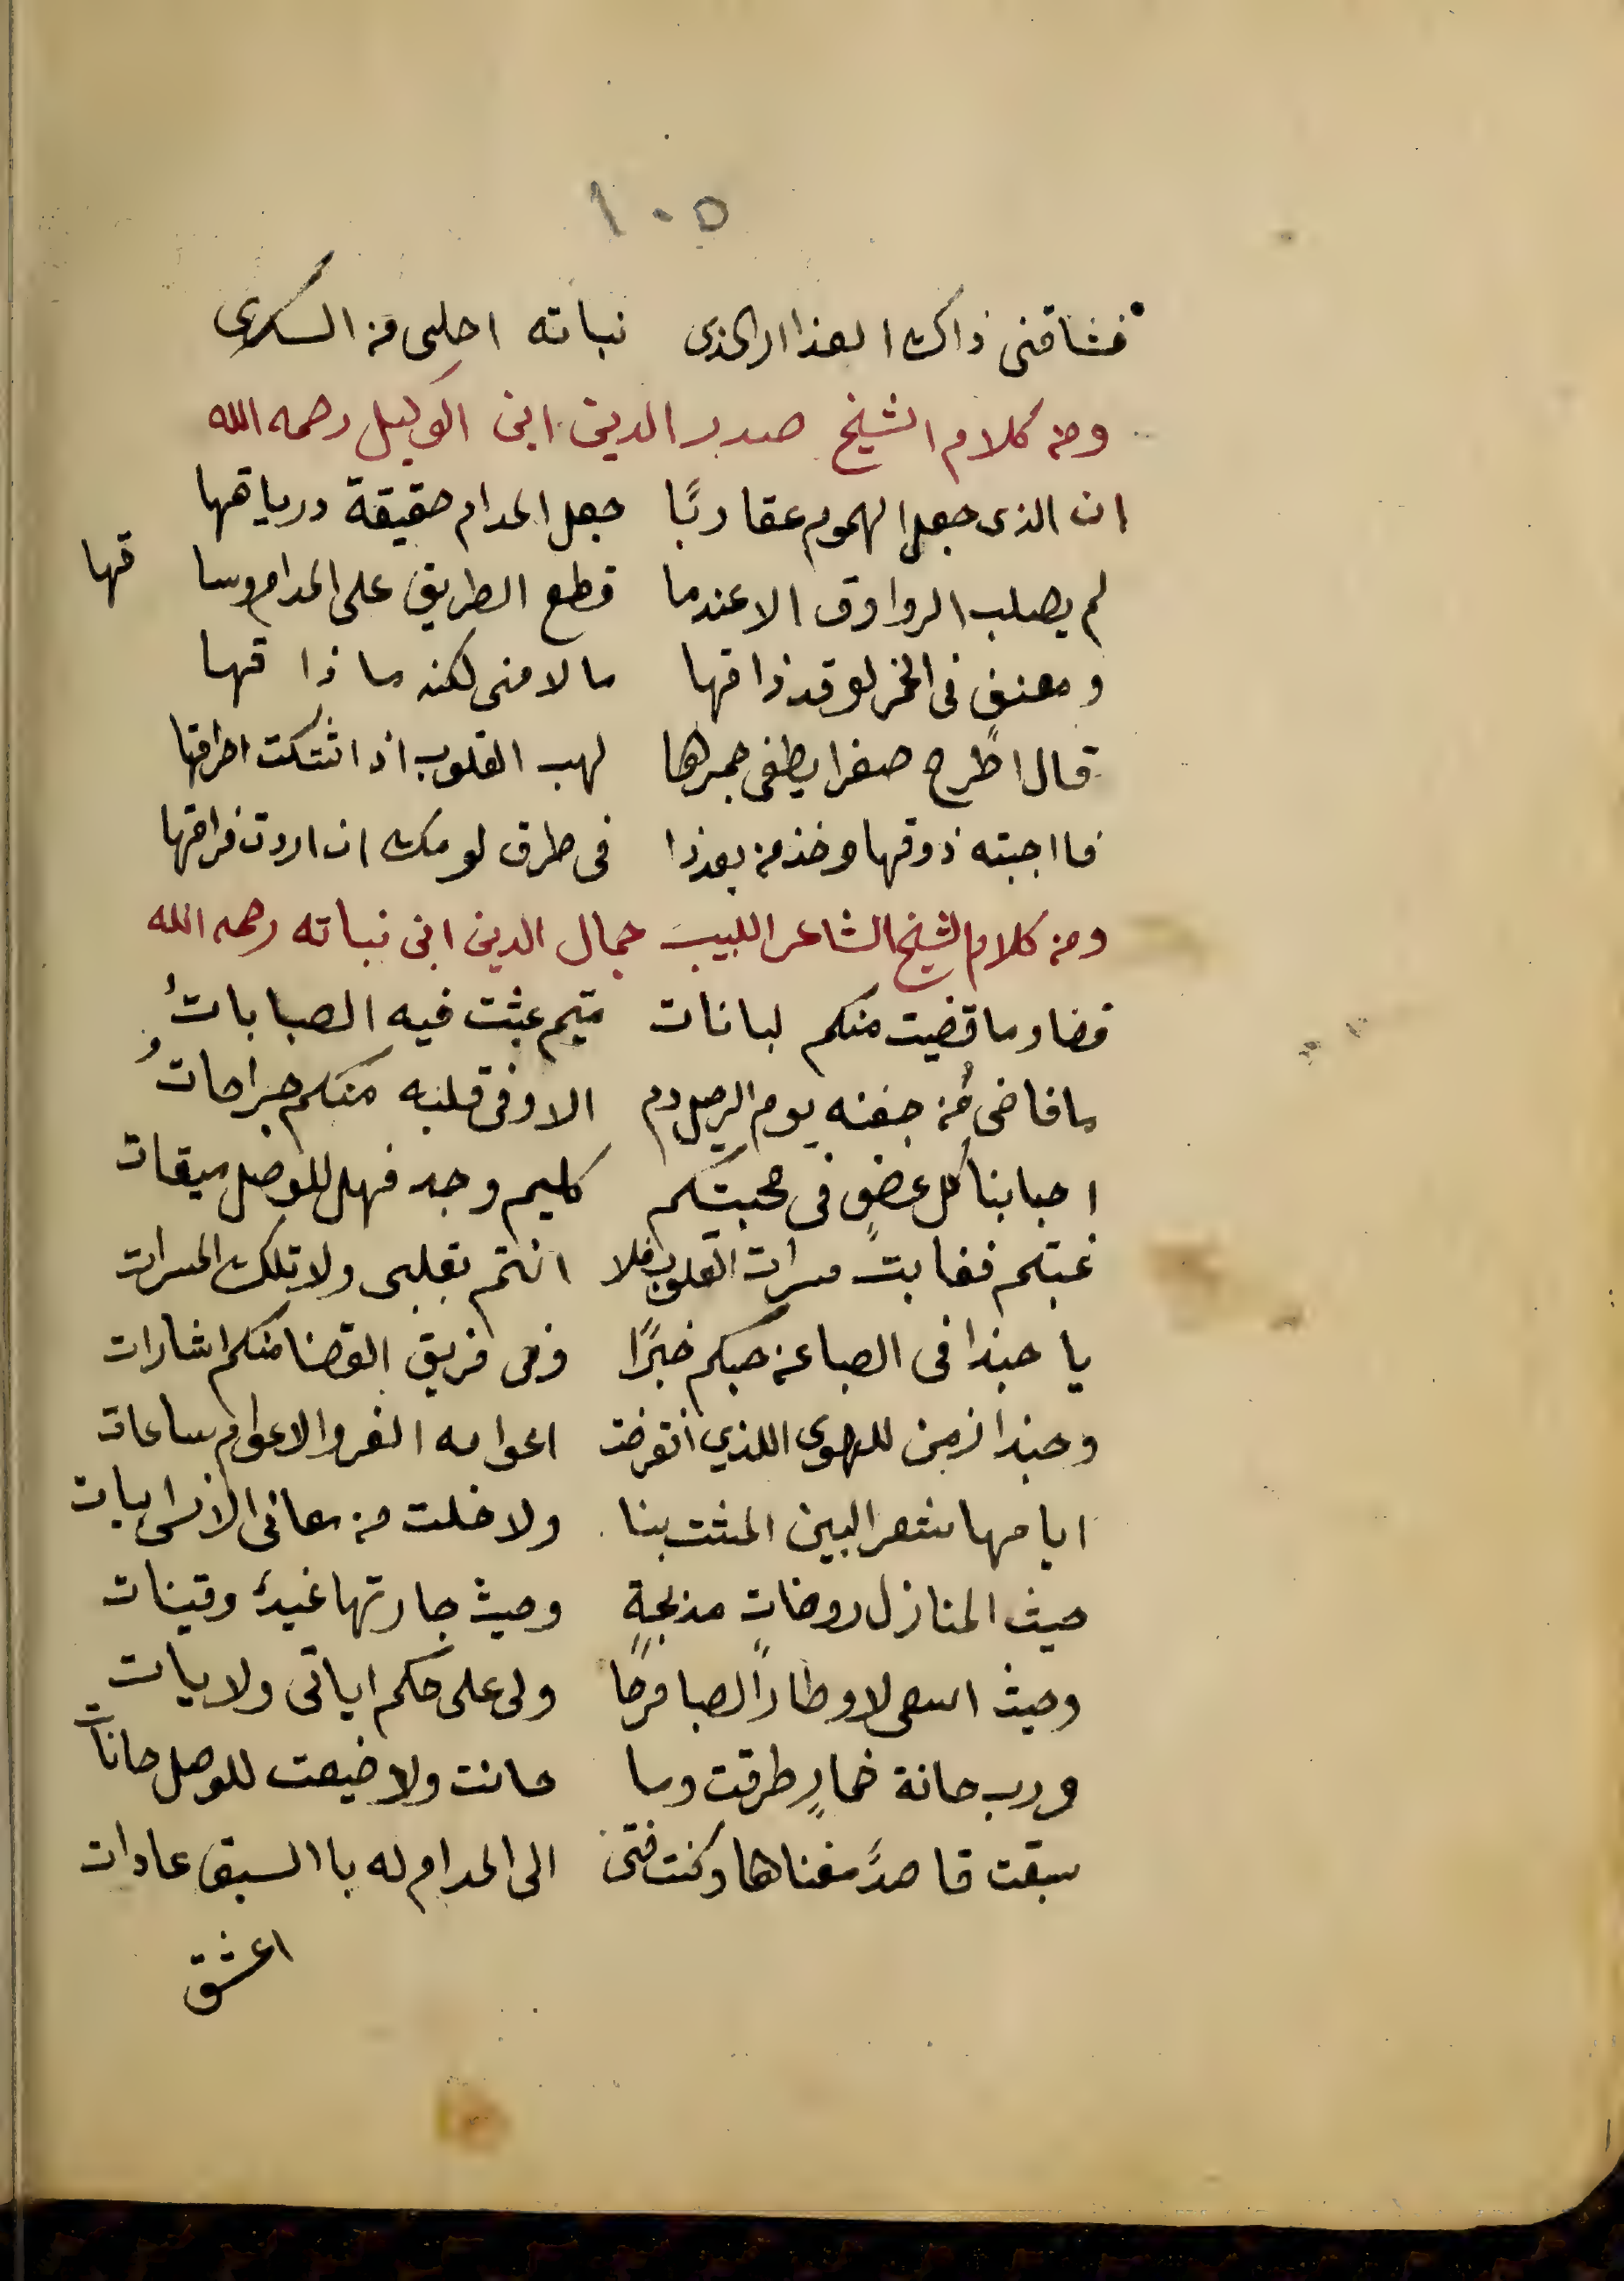 ١٠٥
فشاقنى ذاك العذار الذى نباته احلى من السكرى
ومن كلام الشيخ صدر الدين ابن الوكيل رحمه الله
ان الذى جعل الهموم عقاربًا جعل المدام حقيقة درياقها
لم يصلب الرواوق الا عندما قطع الطريق على المدام وسا قها
ومعنفٍ فى الخمر لو قد ذاقها ما لامنى لكنه ما ذا قها
قال اطرح صفرا يطفى جمرها لهب القلوب اذا اشتكت احراقها
فا اجبته ذوقها وخذ من بعد ذا فى طرق لومك ان اردت فراقها
ومن كلام الشيخ الشاعر اللبيب جمال الدين ابن نباته رحمه الله
قضا وما قضيت منكم لبانات متيم عبثت فيه الصباباتُ
ما فاضى من جفنه يوم الرحيل دم الا وفى قلبه منكم جراحاتُ
احبابنا كل عضوٍ فى محبتكم كليم وجد فهل للوصل ميقات
غبتم فغابت مسرات القلوب فلا انتم بقلبى ولا تلك المسرات
يا حبذا فى الصبا عن حبكم خبرًا وفى فريق القضا منكم اشارات
وحبذا زمن للهوى اللذي انقرضت اعوامه الغر والاعوام ساعات
ايامها شعر البين المشت بنا ولا خلت من معانى الانس ابيات
حيث المنازل روضات مدبجةٍ وحيث جارتها غيدٌ وقينات
وحيث اسعى لاوطار الصبا مرحًا ولى على حكم اياتى ولايات
ورب حانة خمارٍ طرقت وما حانت ولا ضيعت للوصل حانات
سبقت قاصدًَ مغناها وكنت فتىً الى المدام له با السبق عادات
اعشق